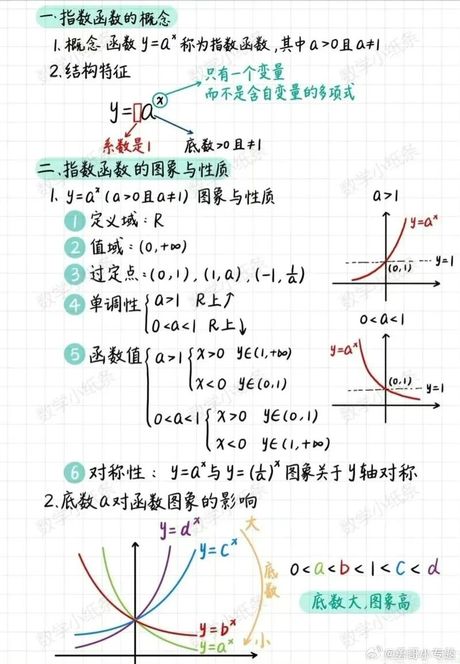 一.指数函数的概念
1.概念 函数 y=aˣ 称为指数函数,其中 a>0且a≠1
2.结构特征
只有一个变量
而不是含自变量的多项式
y=□aˣ
系数是1 底数>0且≠1
二.指数函数的图象与性质
1. y=aˣ (a>0且a≠1) 图象与性质
① 定义域: R
② 值域: (0,+∞)
③ 过定点: (0,1), (1,a), (-1, 1/a)
④ 单调性 { a>1 R上↑
0<a<1 R上↓
⑤ 函数值 { a>1 { x>0 y∈(1,+∞)
x<0 y∈(0,1)
0<a<1 { x>0 y∈(0,1)
x<0 y∈(1,+∞)
⑥ 对称性: y=aˣ与y=(1/a)ˣ 图象关于y轴对称
a>1
y=aˣ
y=1
(0,1)
0<a<1
y=aˣ
(0,1)
y=1
2.底数a对函数图象的影响
y=dˣ
y=cˣ
y=bˣ
y=aˣ
大
底数
小
0<a<b<1<c<d
底数大,图象高
数学小纸条